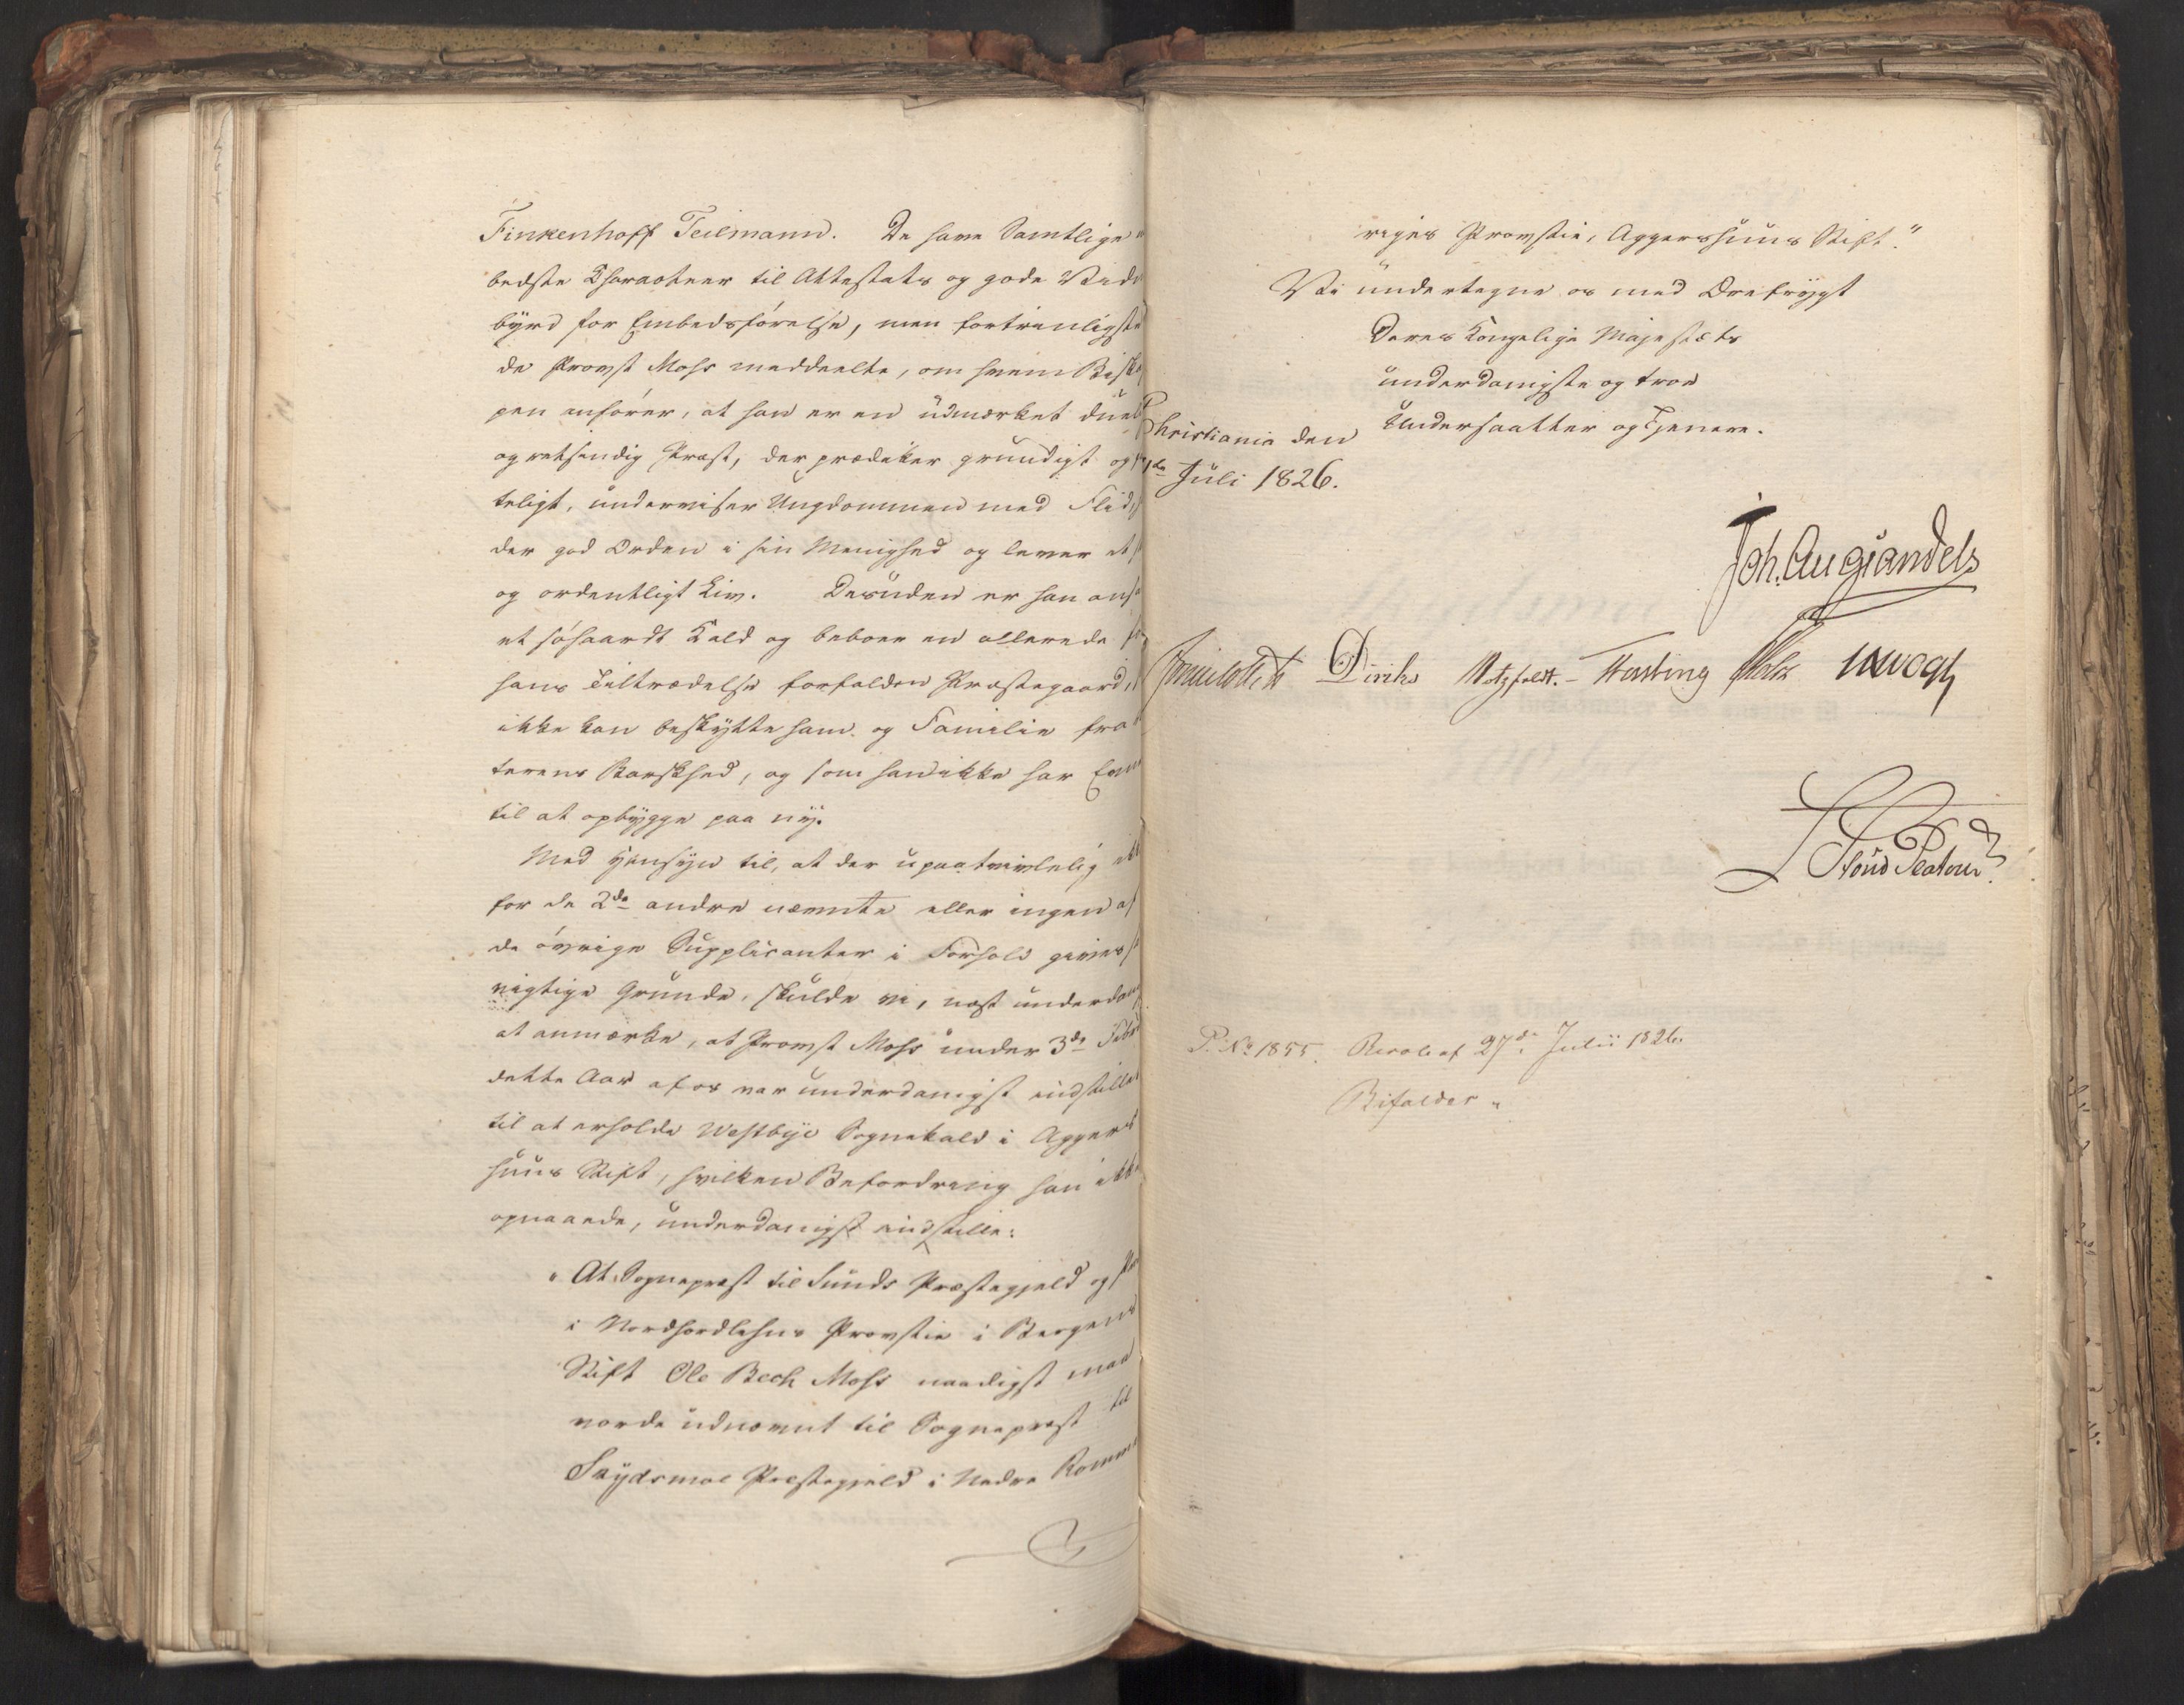 Finkenhoff Teilmann. De have Samtlige
bedste Characteer til Attestats og gode Vidn
byrd for Embedsførelse, men fortrinligst
de Provst Mohr meddeelte, om hvem Bisko
pen anfører, at han er en udmærket duel
og retsindig Præst, der prædiker grundigt og
teligt, underviser Ungdommen med Flid,
der god Orden i sin Menighed og lever et
og ordentligt Liv. Desuden er han ansa
et søhaardt Kald og beboer en allerede
hans Tiltrædelse forfalden Præstegaard,
ikke kan beskytte ham og Familie fra
terens Barskhed, og som han ikke har Evne
til at opbygge paa ny.
Med Hensyn til, at der upaatvivlelig ikk
for de 2de andre nævnte eller ingen af
de øvrige Supplicanter i Forhold gives
vigtige Grunde, skulde vi, næst underdan
at anmærke, at Provst Mohr under 3de Febr
dette Aar af os var underdanigst indstillet
til at erholde Westbye Sognekald i Aggers
huus Stift, hvilken Befordring han ikke
opnaaede, underdanigst indstille:
"At Sognepræst til Sunds Præstegjeld og Pro
i Nordhordlehns Provstie i Bergens
Stift Ole Bech Mohr naadigst maa
vorde udnævnt til Sognepræst til
Skydsmoe Præstegjeld i Nedre Romme
riges Provstie, Aggershuus Stift."
Vi undertegne os med Ærefrygt
Deres Kongelige Majestæts
underdanigste og troe
Undersaatter og Tjenere.
Christiania den
1ste Juli 1826.
Joh. Aug Sandels
Sommerhielm Diriks Motzfeldt. Fasting Holst JHVogt
Stoud Platou
P. No 1855. Resol. af 27de Julii 1826.
Bifaldes.